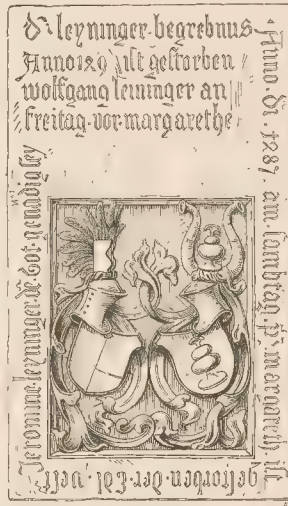 d' leyninger · begrebnus
Anno 1 29 ist gestorben
wolfgang leininger an
freitag · vor · margarethe
Anno · dı · 1287 · am · sambtag · margareth ist
gestorben · der · Edl · vest
Jeronimus · leyninger · dē · Got · genadig sey